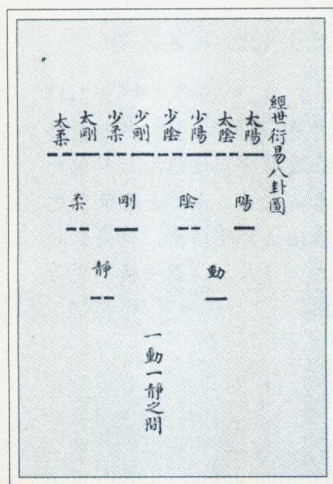 經世衍易八卦圖
太陽
太陰
少陽
少陰
少剛
少柔
太剛
太柔
陽
陰
剛
柔
動
靜
一動一靜之間